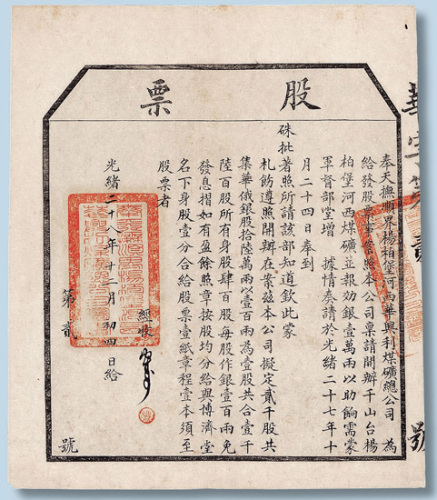 股票
奉天撫順界楊柏堡河西華興利煤礦總公司 為
給發股票事竊照本公司票請開辦千山台楊
柏堡河西煤礦並報効銀壹萬兩以助餉需蒙
軍督部堂增 據情奏請於光緒二十七年十
月二十四日奉到
硃批著照所請該部知道欽此蒙
札飭遵照開辦在案茲本公司擬定貳千股共
集華俄銀股拾陸萬兩以壹百兩為壹股共合壹千
陸百股所有身股肆百股每股作銀壹百兩免
發息摺如有盈餘照章按股均分給與博濟堂
名下身股壹分合給股票壹紙章程壹本須至
股票者
經收
光緒二十八年十二月初四日給
第 號
號